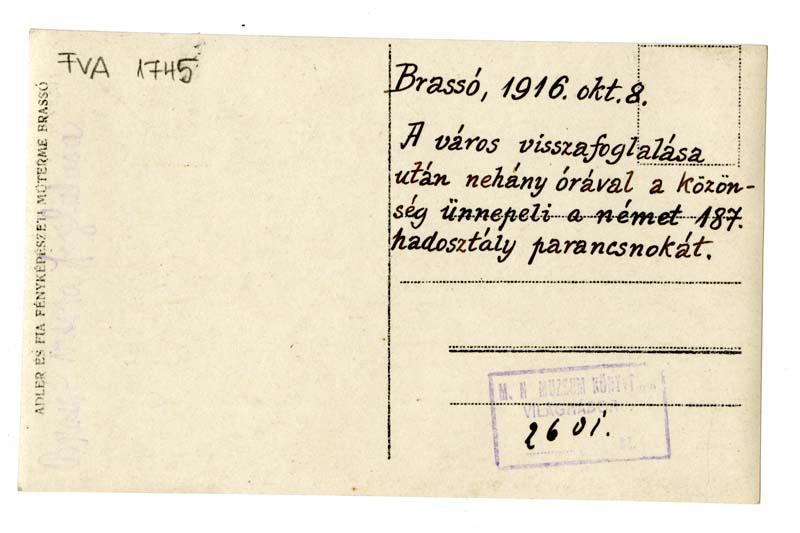 FVA 1745
ADLER ÉS FIA FÉNYKÉPÉSZETI MŰTERME BRASSÓ
Brassó, 1916. okt. 8.
A város visszafoglalása
után nehány órával a közön-
ség ünnepeli a német 187.
hadosztály parancsnokát.
M. N. MUZEUM KÖNYVT
VILÁGHÁBOR